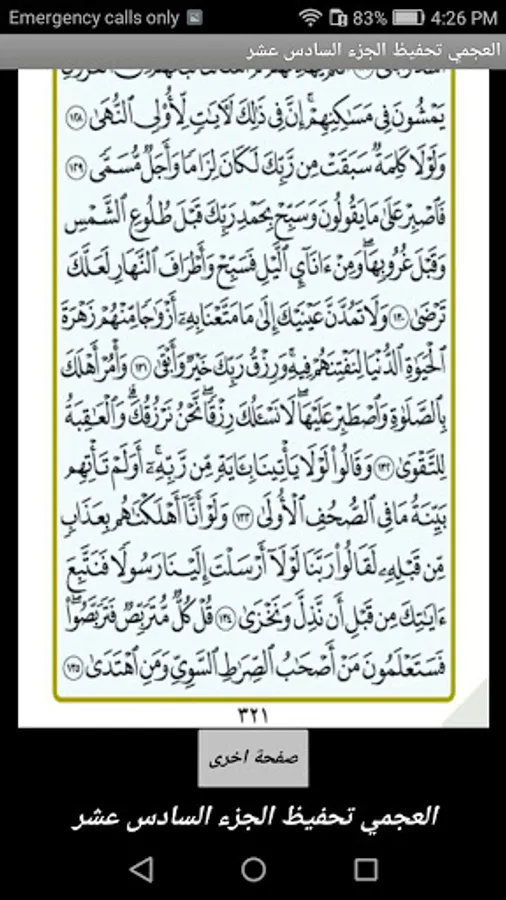 Emergency calls only 83% 4:26 PM
العجمي تحفيظ الجزء السادس عشر
يَمْشُونَ فِي مَسَٰكِنِهِمْۚ إِنَّ فِي ذَٰلِكَ لَأٓيَٰتٖ لِّأُوْلِي ٱلنُّهَىٰ ١٢٨
وَلَوْلَا كَلِمَةٞ سَبَقَتْ مِن رَّبِّكَ لَكَانَ لِزَامٗا وَأَجَلٞ مُّسَمّٗى ١٢٩
فَٱصْبِرْ عَلَىٰ مَا يَقُولُونَ وَسَبِّحْ بِحَمْدِ رَبِّكَ قَبْلَ طُلُوعِ ٱلشَّمْسِ
وَقَبْلَ غُرُوبِهَاۖ وَمِنْ ءَانَآيِٕ ٱلَّيْلِ فَسَبِّحْ وَأَطْرَافَ ٱلنَّهَارِ لَعَلَّكَ
تَرْضَىٰ ١٣٠ وَلَا تَمُدَّنَّ عَيْنَيْكَ إِلَىٰ مَا مَتَّعْنَا بِهِۦٓ أَزْوَٰجٗا مِّنْهُمْ زَهْرَةَ
ٱلْحَيَوٰةِ ٱلدُّنْيَا لِنَفْتِنَهُمْ فِيهِۚ وَرِزْقُ رَبِّكَ خَيْرٞ وَأَبْقَىٰ ١٣١ وَأْمُرْ أَهْلَكَ
بِٱلصَّلَوٰةِ وَٱصْطَبِرْ عَلَيْهَاۖ لَا نَسْـَٔلُكَ رِزْقٗاۖ نَّحْنُ نَرْزُقُكَۗ وَٱلْعَٰقِبَةُ
لِلتَّقْوَىٰ ١٣٢ وَقَالُواْ لَوْلَا يَأْتِينَا بِـَٔايَةٖ مِّن رَّبِّهِۦٓۚ أَوَلَمْ تَأْتِهِم
بَيِّنَةُ مَا فِي ٱلصُّحُفِ ٱلْأُولَىٰ ١٣٣ وَلَوْ أَنَّآ أَهْلَكْنَٰهُم بِعَذَابٖ
مِّن قَبْلِهِۦ لَقَالُواْ رَبَّنَا لَوْلَآ أَرْسَلْتَ إِلَيْنَا رَسُولٗا فَنَتَّبِعَ
ءَايَٰتِكَ مِن قَبْلِ أَن نَّذِلَّ وَنَخْزَىٰ ١٣٤ قُلْ كُلّٞ مُّتَرَبِّصٞ فَتَرَبَّصُواْۖ
فَسَتَعْلَمُونَ مَنْ أَصْحَٰبُ ٱلصِّرَٰطِ ٱلسَّوِيِّ وَمَنِ ٱهْتَدَىٰ ١٣٥
٣٢١
صفحة اخرى
العجمي تحفيظ الجزء السادس عشر